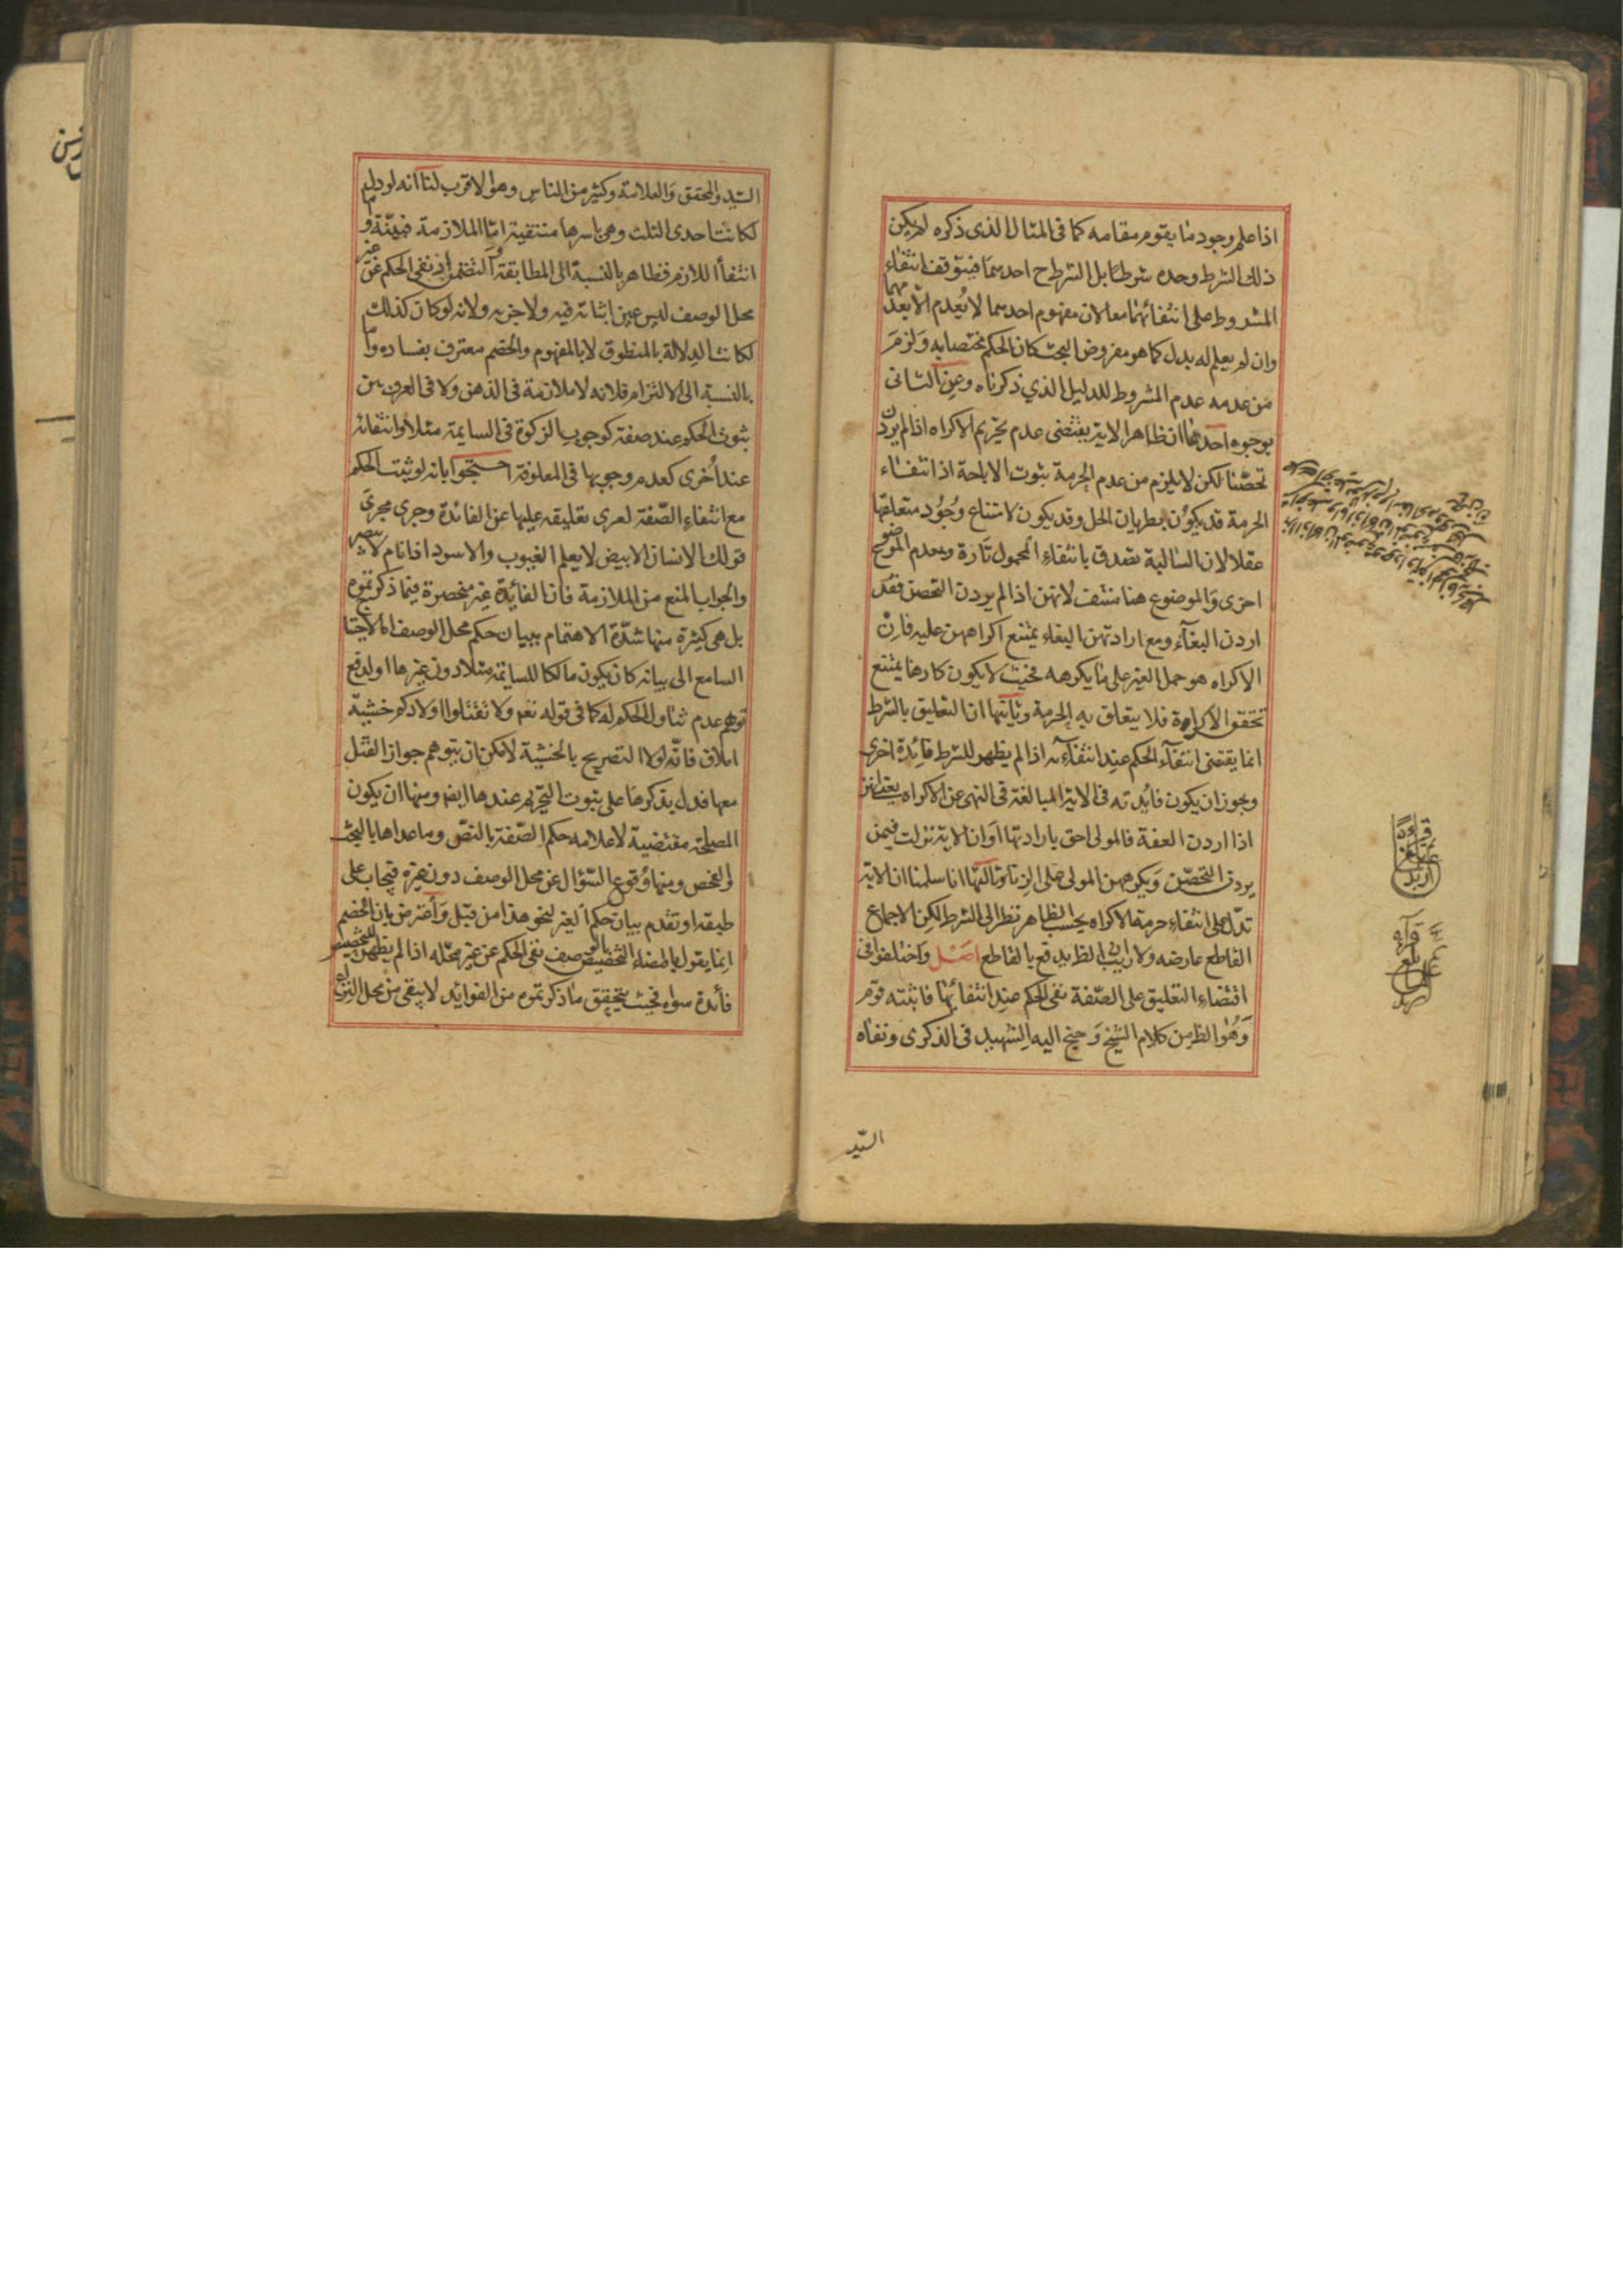 اذا علم وجود ما يقوم مقامه كما فى المثال الذى ذكره لم يكن
ذلك الشرط وحده شرطا بل الشرط ح احدهما فيتوقف انتفاء
المشروط على انتفائهما معا لان مفهوم احدهما لا يُعدم الا بعدمهما
وان لم يعلم له بدل كما هو مفروض البحث كان الحكم مختصا به وَلزمَ
من عدمه عدم المشروط للدليل الذي ذكرناه وعن الثانى
بوجوه احدها ان ظاهر الاية يقتضى عدم تحريم الاكراه اذا لم يردن
تحصّنا لكن لا يلزم من عدم الحرمة ثبوت الاباحة اذ انتفاء
الحرمة قد يكون بطريان الحل وقد يكون لامتناع وجُوُد متعلقها
عقلا لان السالبة تصدق بانتفاء المحمول تارة وبعدم الموضوع
اخرى وَالموضوع هنا منتف لانهن اذا لم يردن التحصن فقد
اردن البغآء ومع ارادتهن البغاء يمتنع اكراههن عليه فان
الاكراه هو حمل الغير على ما يكرهه فحيث لا يكون كارها يمتنع
تحقق الاكراه فلا يتعلق به الحرمة وثانيها ان التعليق بالشرط
انما يقتضى انتفآء الحكم عند انتفآئه اذا لم يظهر للشرط فائدة اخرى
ويجوز ان يكون فائدته فى الاية المبالغة فى النهى عن الاكراه يعنى انهن
اذا اردن العفة فالمولى احق بارادتها اوان الاية نزلت فيمن
يردن التحصّن وَيكرههن المولى على الزنا وثالثها انا سلمنا ان الاية
تدل على انتفاء حرمة الاكراه بحسب الظاهر نظرا الى الشرط لكن الاجماع
القاطع عارضه ولا ريب ان الظ يدفع بالقاطع اصْل واختلفوا فى
اقتضاء التعليق على الصّفة نفى الحكم عند انتفائها فاثبته قوم
وَهُوا لظ من كلام الشيخ وَجنح اليه الشهيد فى الذكرى ونفاه
السيّد
السيد والمحقق وَالعلامة وكثير من الناس وهو الاقرب لنا انه لو دل
لكانت احدى الثلث وهى باسرها منتفية امّا الملازمة فبيّنة و
انتفاا للازم فظاهر بالنسبة الى المطابقة والتضمن اذ نفى الحكم عن غير
محل الوصف ليس عين اثباته فيه ولا جزءه ولانه لو كان كذلك
لكانت الدلالة بالمنطوق لا بالمفهوم والخصم معترف بفساده واما
بالنسبة الى الالتزام فلانه لا ملازمة فى الذهن ولا فى العرف بين
ثبوت الحكم عند صفة كوجوب الزكوة فى السايمة مثلا وانتفائه
عند اُخرى كعدم وجوبها فى المعلوفة احتجّوا بانه لو ثبت الحكم
مع انتفاء الصّفة لعرى تعليقه عليها عن الفائدة وجرى مجرىَ
قولك الانسان الابيض لا يعلم الغيوب والاسود اذا نام لا يبصر
والجواب المنع من الملازمة فان الفائدة غير منحصرة فيما ذكرتموه
بل هى كثيرة منها شدّة الاهتمام ببيان حكم محل الوصف اما لاحتياج
السامع الى بيانه كان يكون مالكا للسايمة مثلا دون غيرها او لدفع
توهم عدم تناول الحكم له كما فى قوله تعم ولا تقتلوا اولادكم خشية
املاق فانّه لولا التصريح بالخشية لامكن ان يتوهم جواز القتل
معها فدل بذكرها على ثبوت التحريم عندها ايض ومنها ان يكون
المصلحة مقتضية لاعلامه حكم الصّفة بالنصّ وما عداها بالبحث
والفحص ومنها وُقوع السّؤال عن محل الوصف دون غيره فيجاب على
طبقه او تقدم بيان حكم الغير لنحو هذا من قبل وَاعترض بان الخصم
انما يقول باقتضاء التخصيص بالوصف نفى الحكم عن غير محلّه اذا لم يظهر للتخصيص
فائدة سواه فحيث يتحقق ما ذكرتموه من الفوايد لا يبقى من محل النزاع